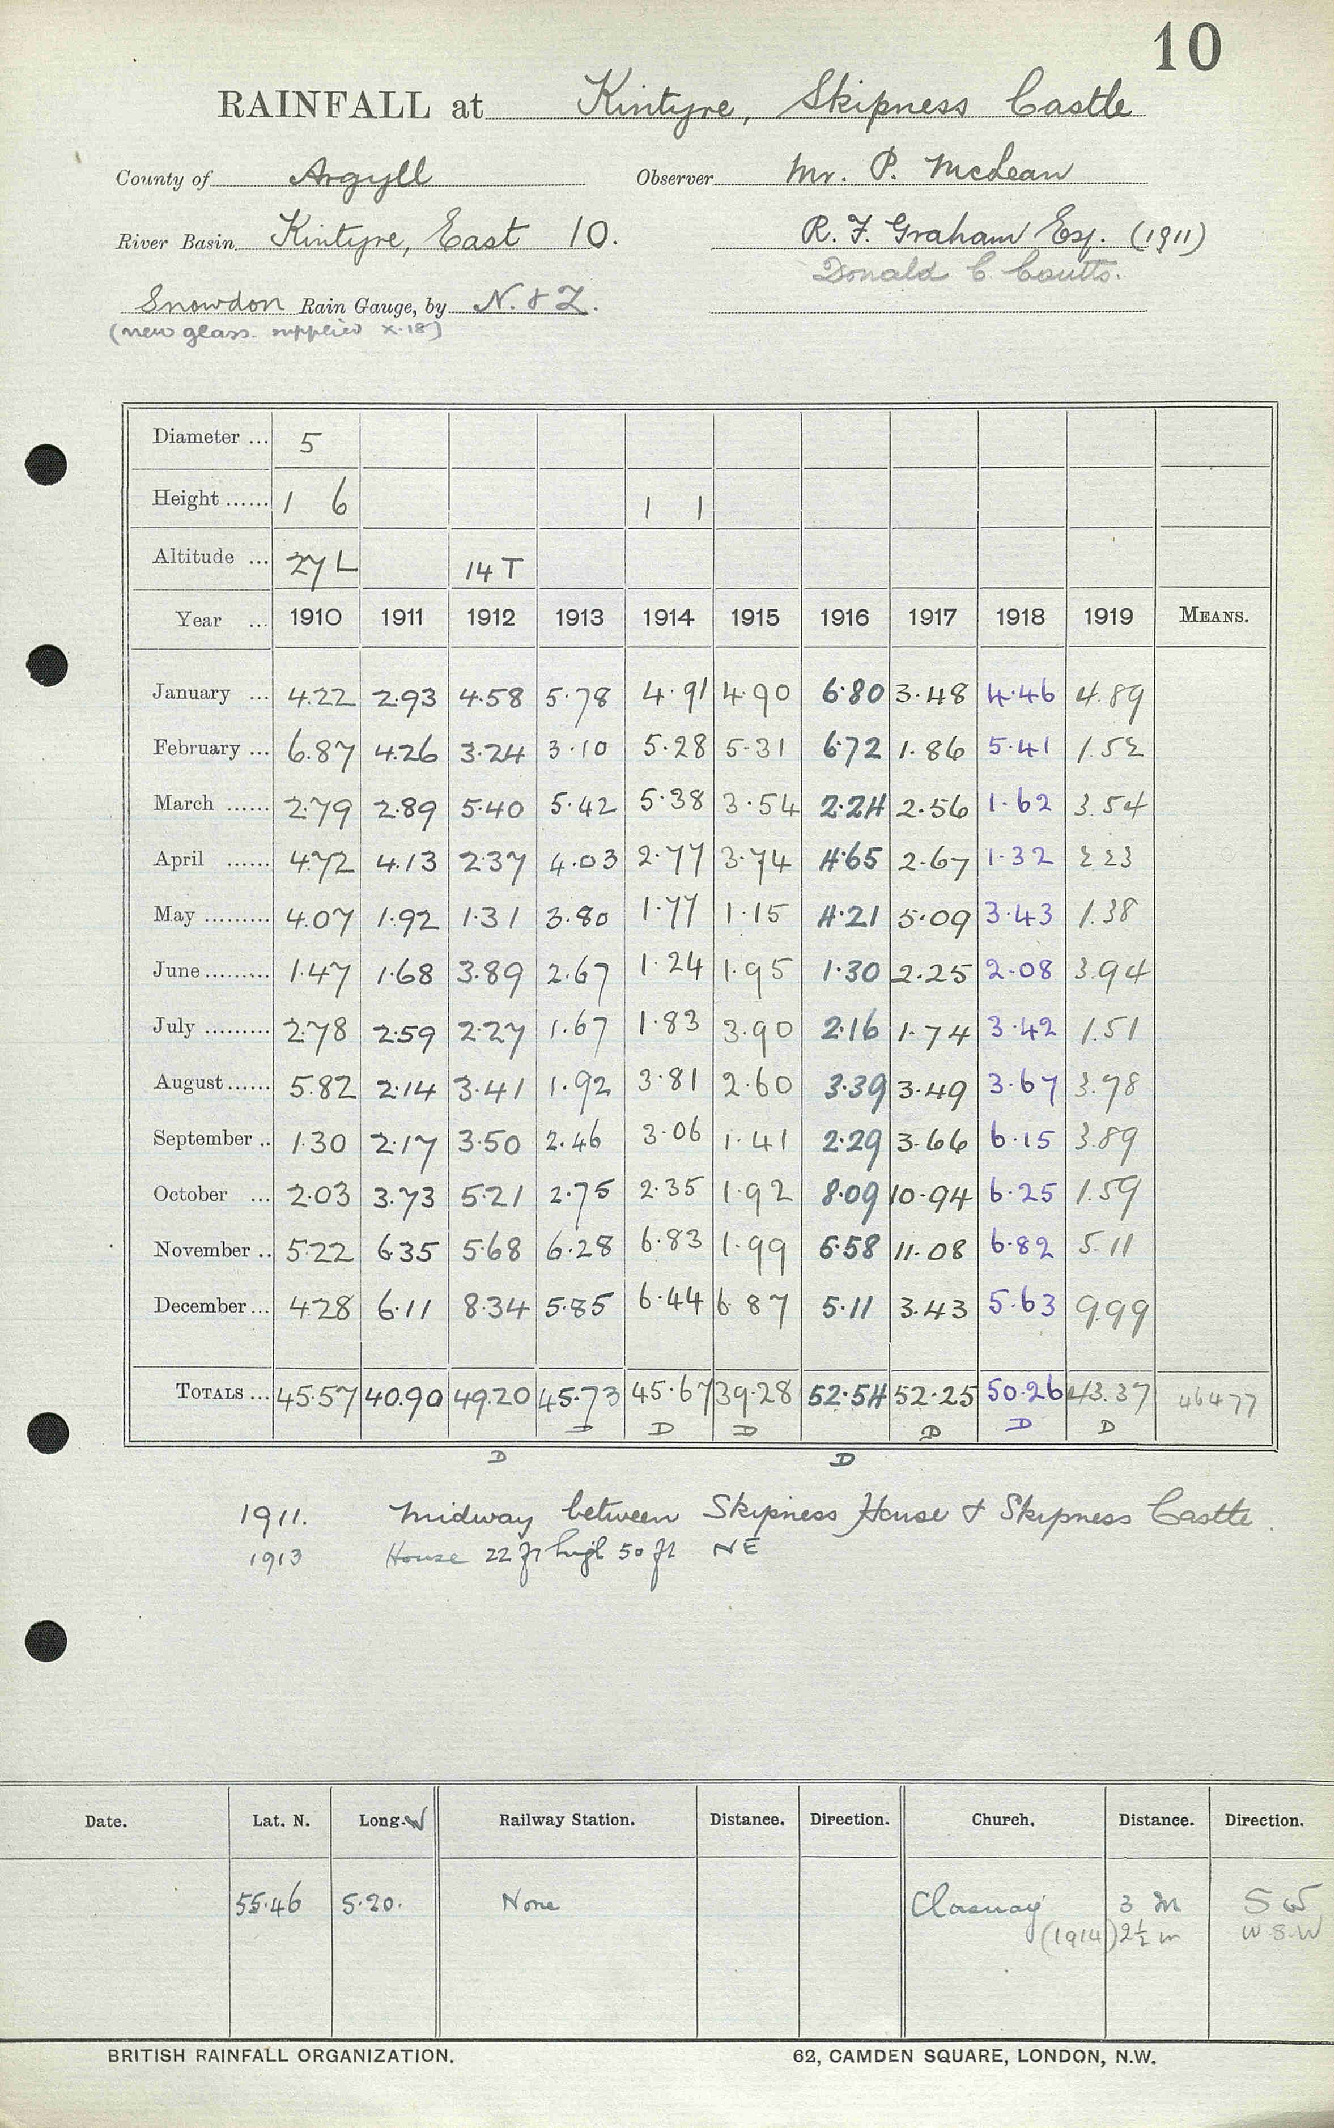 10
RAINFALL at Kintyre, Skipness Castle
County of Argyll Observer Mr. P. McLean
River Basin Kintyre, East 10. R. F. Graham Esq. (1911)
Donald C. Coutts.
Snowdon Rain Gauge, by N. & Z.
(new glass supplied X.18)
Diameter ... 5
Height ...... 1 6 1 1
Altitude ... 27 L 14 T
Year ... 1910 1911 1912 1913 1914 1915 1916 1917 1918 1919 MEANS.
January ... 4.22 2.93 4.58 5.78 4.91 4.90 6.80 3.48 4.46 4.89
February ... 6.87 4.26 3.24 3.10 5.28 5.31 6.72 1.86 5.41 1.52
March ...... 2.79 2.89 5.40 5.42 5.38 3.54 2.24 2.56 1.62 3.54
April ...... 4.72 4.13 2.37 4.03 2.77 3.74 4.65 2.67 1.32 2.23
May ......... 4.07 1.92 1.31 3.80 1.77 1.15 4.21 5.09 3.43 1.38
June ......... 1.47 1.68 3.89 2.67 1.24 1.95 1.30 2.25 2.08 3.94
July ......... 2.78 2.59 2.27 1.67 1.83 3.90 2.16 1.74 3.42 1.51
August ...... 5.82 2.14 3.41 1.92 3.81 2.60 3.39 3.49 3.67 3.78
September .. 1.30 2.17 3.50 2.46 3.06 1.41 2.29 3.66 6.15 3.89
October ... 2.03 3.73 5.21 2.75 2.35 1.92 8.09 10.94 6.25 1.59
November .. 5.22 6.35 5.68 6.28 6.83 1.99 6.58 11.08 6.82 5.11
December ... 4.28 6.11 8.34 5.85 6.44 6.87 5.11 3.43 5.63 9.99
TOTALS ... 45.57 40.90 49.20 45.73 45.67 39.28 52.54 52.25 50.26 43.37 46477
D D D D D D
D D
1911. Midway between Skipness House & Skipness Castle.
1913 House 22 ft high 50 ft NE
Date. Lat. N. Long. W Railway Station. Distance. Direction. Church. Distance. Direction.
55.46 5.20. None 3 m SW
(1914) 2½ m W.S.W
BRITISH RAINFALL ORGANIZATION. 62, CAMDEN SQUARE, LONDON, N.W.